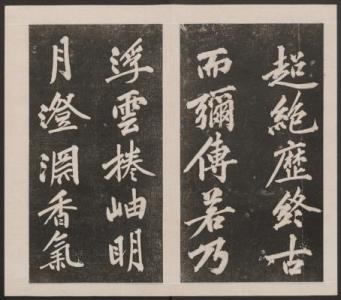 超絶歷終古
而彌傳若乃
浮雲捲岫明
月澄溷香氣